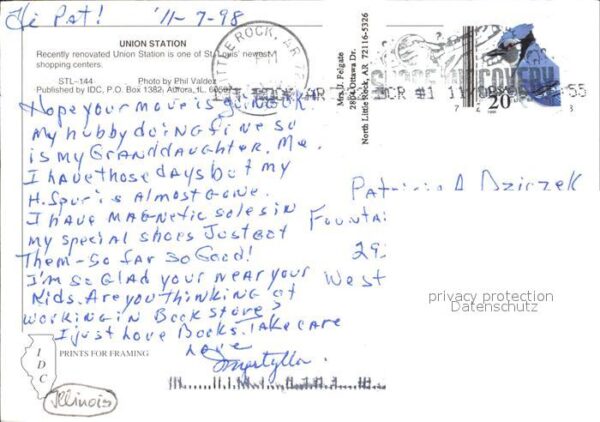 Hi Pat! '11-7-98
UNION STATION
Recently renovated Union Station is one of St. Louis' newest
shopping centers.
STL-144 Photo by Phil Valdez
Published by IDC, P.O. Box 1382, Aurora, IL 60507
Hope your move is going OK
My hubby doing fine so
is my Granddaughter. Me.
I have those days but my
H. Spur is Almost Gone.
I HAVE MAGNETIC soles in
my special shoes Just got
Them - So far so Good!
I'm so GLAD your near your
Kids. Are you Thinking of
working in Book stores
I just Love Books. Take care
Love
Myrtylla.
IDC
PRINTS FOR FRAMING
Illinois
LITTLE ROCK, AR
SPACE DISCOVERY
BCR #1 11/08/98
20
Mrs. J. Felgate
2804 Ottawa Dr.
North Little Rock, AR 72116-5326
Patricia A Dziczek
Founta
29
West
privacy protection
Datenschutz